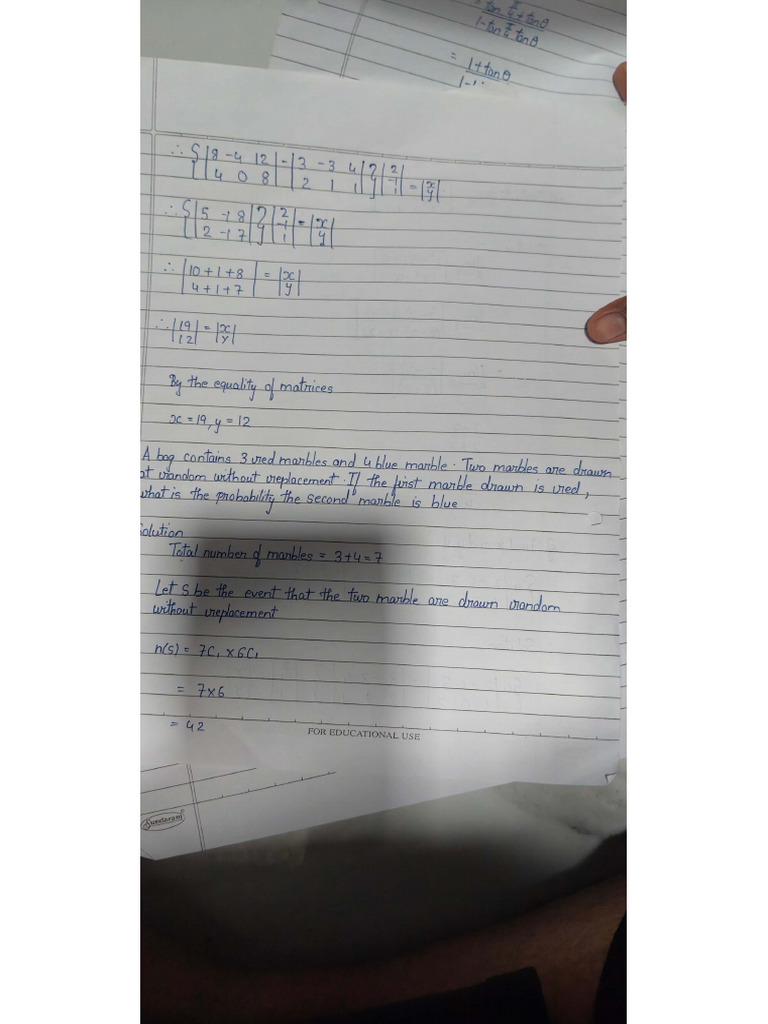 tan π/4 + tanθ
1-tan π/4 tanθ
= 1+tanθ
∴ {|8 -4 12| - |3 -3 4|}|2| = |x|
{|4 0 8| |2 1 1|}|-1| |y|
|1|
∴ {|5 -1 8|}|2| = |x|
{|2 -1 7|}|-1| |y|
|1|
∴ |10+1+8| = |x|
|4+1+7| |y|
∴ |19| = |x|
|12| |y|
By the equality of matrices
x = 19, y = 12
A bag contains 3 red marbles and 4 blue marble. Two marbles are drawn
at random without replacement. If the first marble drawn is red,
what is the probability the second marble is blue
Solution
Total number of marbles = 3+4=7
Let S be the event that the two marble are drawn random
without replacement
n(s) = 7C₁ x 6C₁
= 7x6
= 42
FOR EDUCATIONAL USE
Sundaram